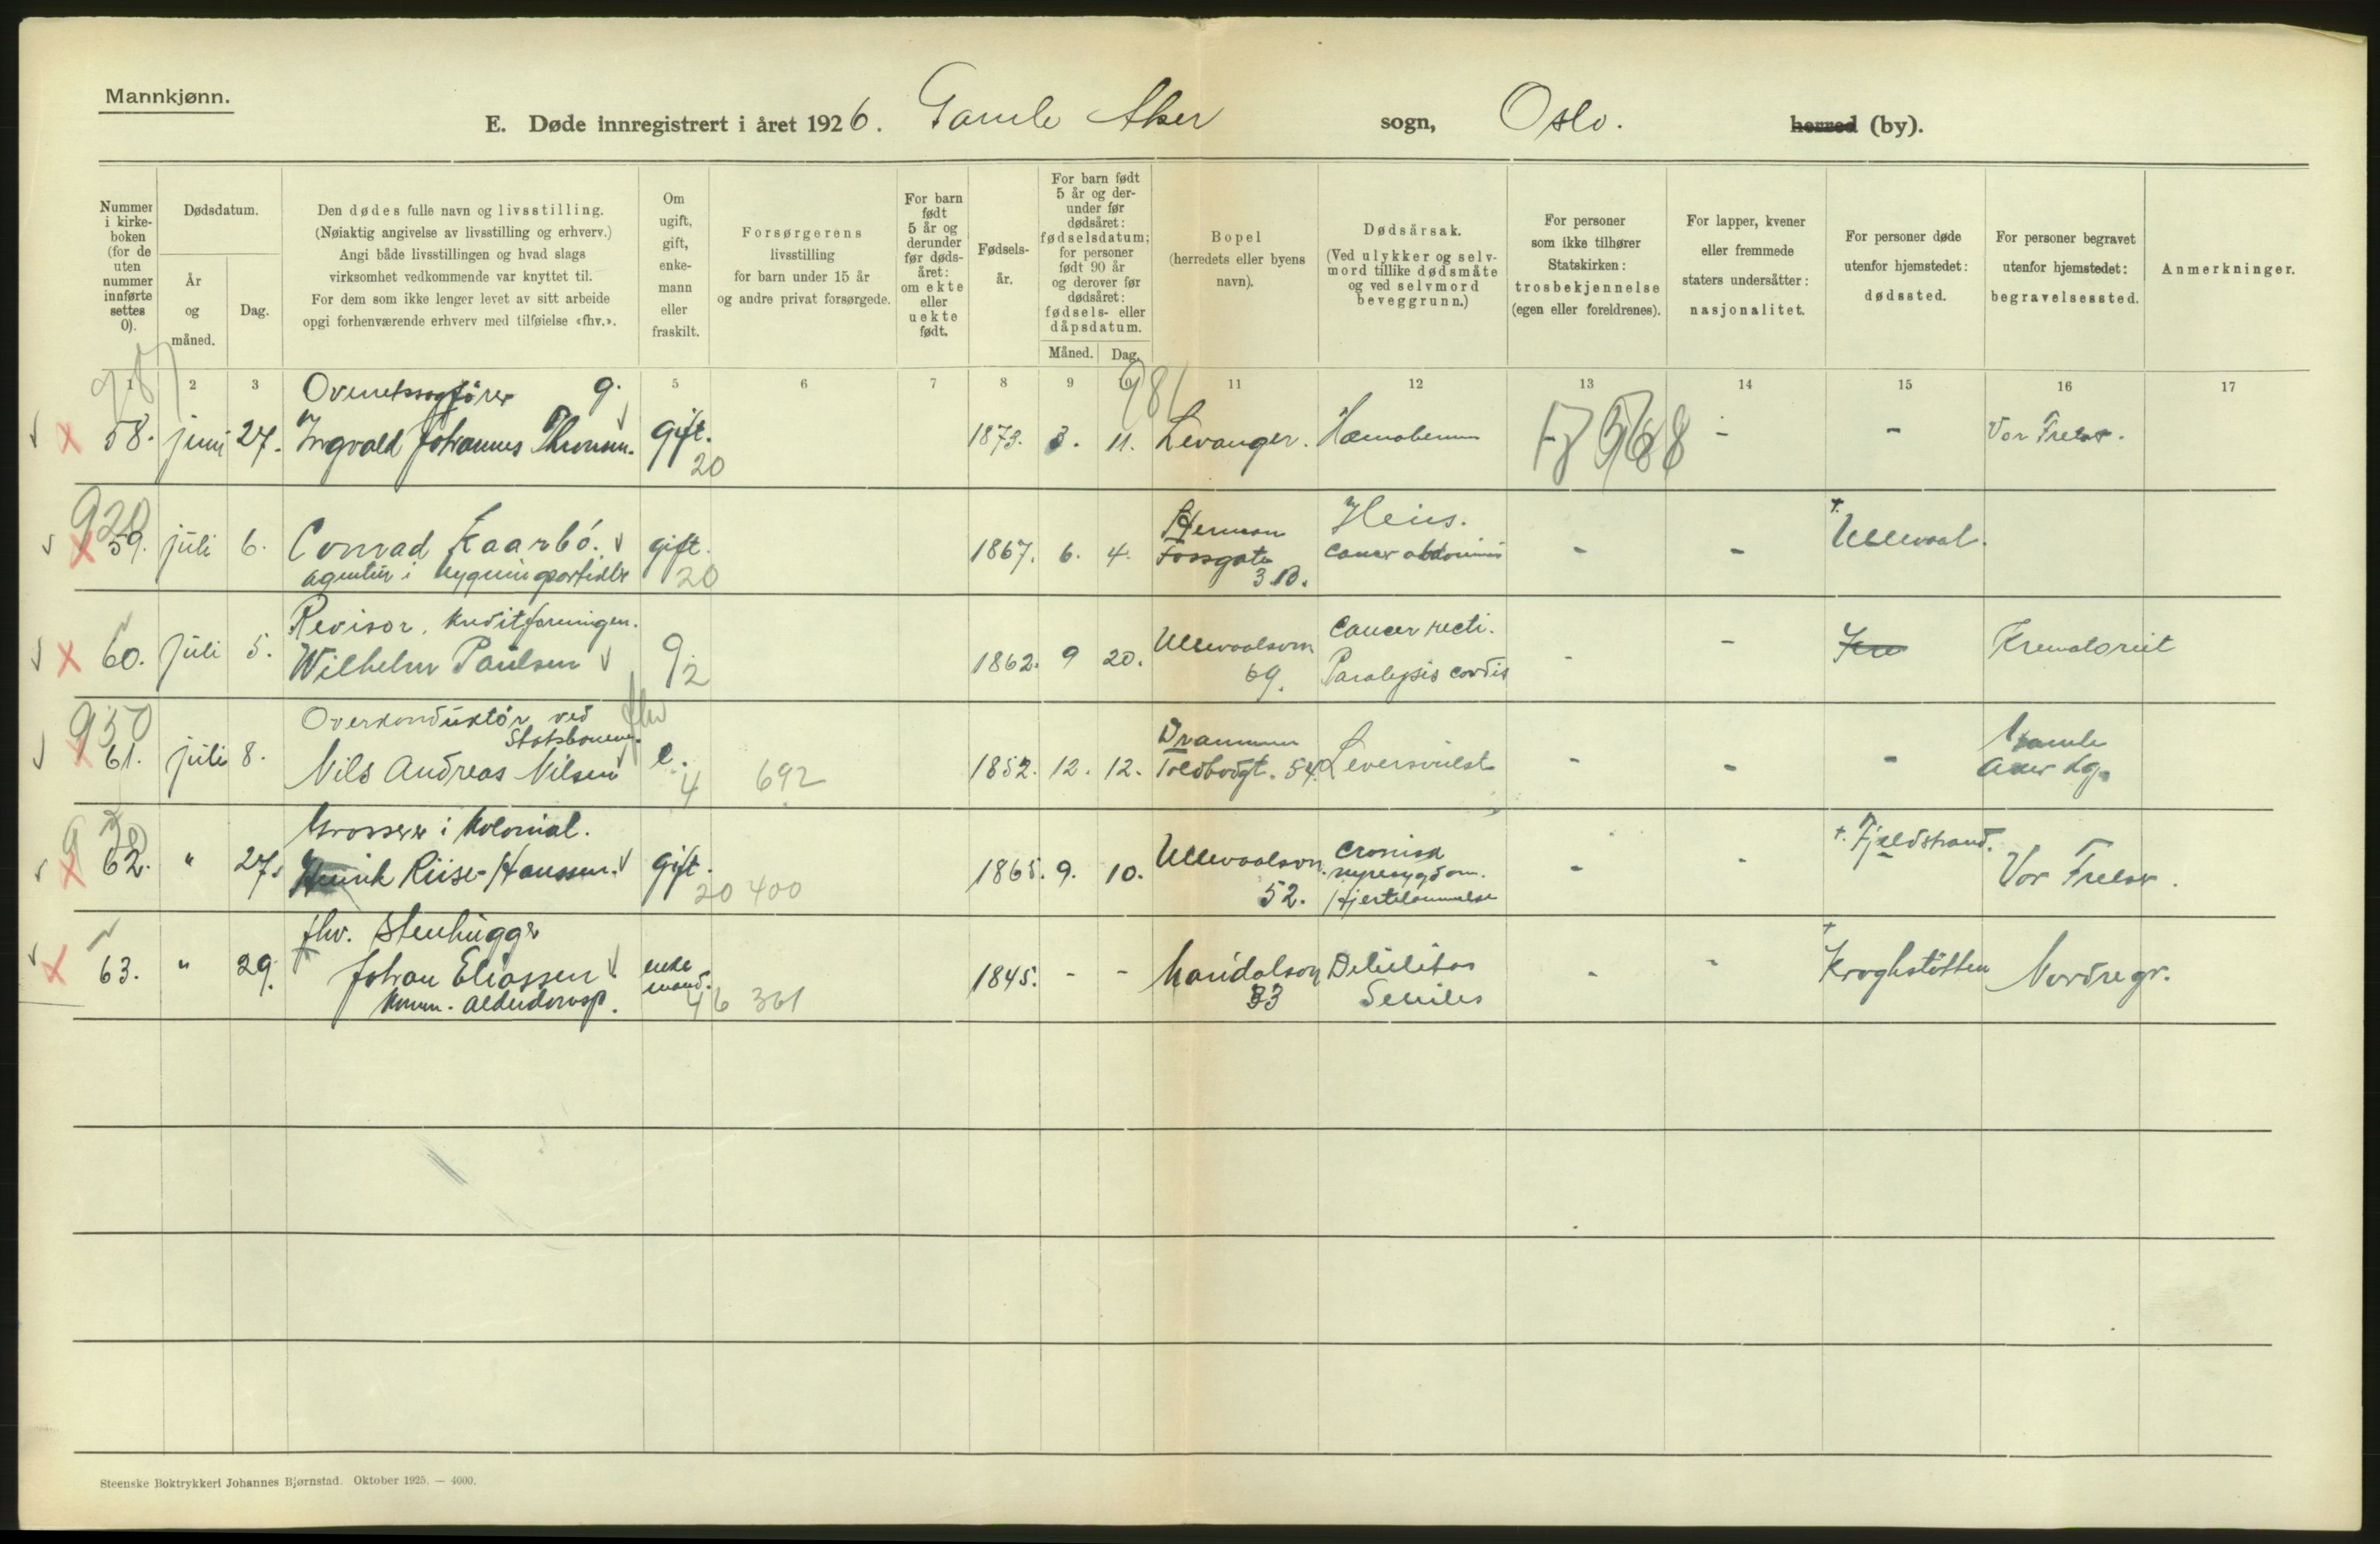 Mannkjønn.
E. Døde innregistrert i året 1926. Gamle Aker sogn, Oslo. herred (by).
Nummer i kirke-boken (for de uten nummer innførte settes 0).
Dødsdatum.
År og måned.
Dag.
Den dødes fulle navn og livsstilling.
(Nøiaktig angivelse av livsstilling og erhverv.)
Angi både livsstillingen og hvad slags
virksomhet vedkommende var knyttet til.
For dem som ikke lenger levet av sitt arbeide
opgi forhenværende erhverv med tilføielse «fhv.».
Om ugift, gift, enke-mann eller fraskilt.
Forsørgerens
livsstilling
for barn under 15 år
og andre privat forsørgede.
For barn født 5 år og derunder før døds-året: om ekte eller uekte født.
Fødsels-år.
For barn født 5 år og der-under før dødsåret: fødselsdatum; for personer født 90 år og derover før dødsåret: fødsels- eller dåpsdatum.
Måned. Dag.
Bopel
(herredets eller byens
navn).
Dødsårsak.
(Ved ulykker og selv-
mord tillike dødsmåte
og ved selvmord
beveggrunn.)
For personer
som ikke tilhører
Statskirken:
trosbekjennelse
(egen eller foreldrenes).
For lapper, kvener
eller fremmede
staters undersåtter:
nasjonalitet.
For personer døde
utenfor hjemstedet:
dødssted.
For personer begravet
utenfor hjemstedet:
begravelsessted.
Anmerkninger.
1 2 3 5 6 7 8 9 10 11 12 13 14 15 16 17
981
Overretssagfører g.
58. juni 27. Ingvald Johannes Thronsen. gift. 1873. 3. 11. Levanger. - - Vor Frelser.
20
59. juli 6. Conrad Kaarbö. gift. 1867. 6. 4. Herman Fossgate 3 B. Ileus. Cancer abdominis - - + Ullevaal.
agentur i bygningsartikler 20
Revisor, Kreditforeningen.
60. juli 5. Wilhelm Paulsen g 2 1862. 9 20. Ullevaalsvn 69. Cancer recti. Paralysis cordis - - Krematoriet
950
Overkonduktör ved Statsbanene. fhv
61. juli 8. Nils Andreas Nilsen e. 4 692 1852. 12. 12. Drammen Toldbodgt. 54. Leversvulst - - - Gamle Aker kg.
Grosserer i Kolonial.
62. " 27. Henrik Riise-Hanssen. gift. 20 400 1865. 9. 10. Ullevaalsvn. 52. Cronisk nyresygdom. Hjertelammelse - - +. Fjeldstrand. Vor Frelser.
fhv. Stenhugger
63. " 29. Johan Eliassen enke mand. 46 361 1845. - - Maridalsvn 33 Debilitas Seniles - - + Kroghstötten Nordre gr.
Komm. alderdomsp.
Steenske Boktrykkeri Johannes Bjørnstad. Oktober 1925. — 4000.